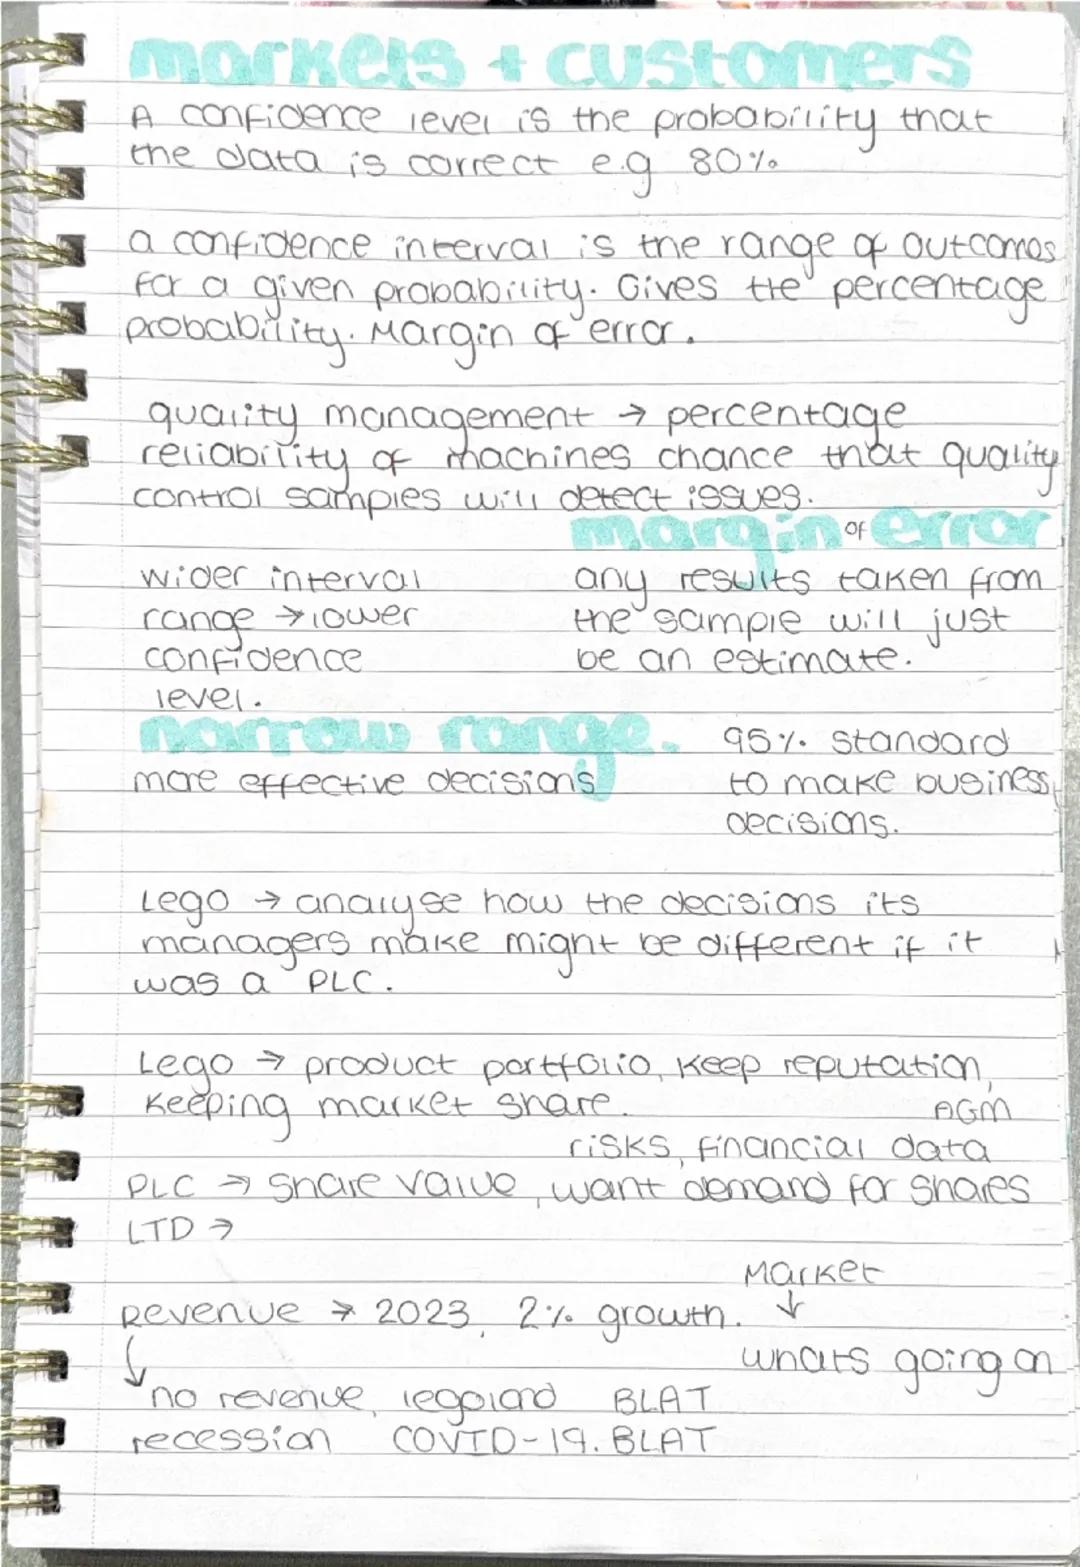 markets + customers
A confidence level is the probability that
the data is correct e.g 80%
a confidence interval is the range of outcomes
for a given probability. Gives the percentage
probability. Margin of error.
quality management → percentage
reliability of machines chance that quality
control samples will detect issues.
margin of error
wider interval
range → lower
confidence
level.
any results taken from
the sample will just
be an estimate.
narrow range.
more effective decisions
95% standard
to make business
decisions.
Lego → analyse how the decisions its
managers make might be different if it
was a PLC.
Lego → product portfolio, keep reputation,
keeping market share.
AGM
risks, financial data
PLC → share value, want demand for shares
LTD →
Market
↓
whats going on
Revenue → 2023, 2% growth.
↓
no revenue, legoland BLAT
recession COVID-19. BLAT